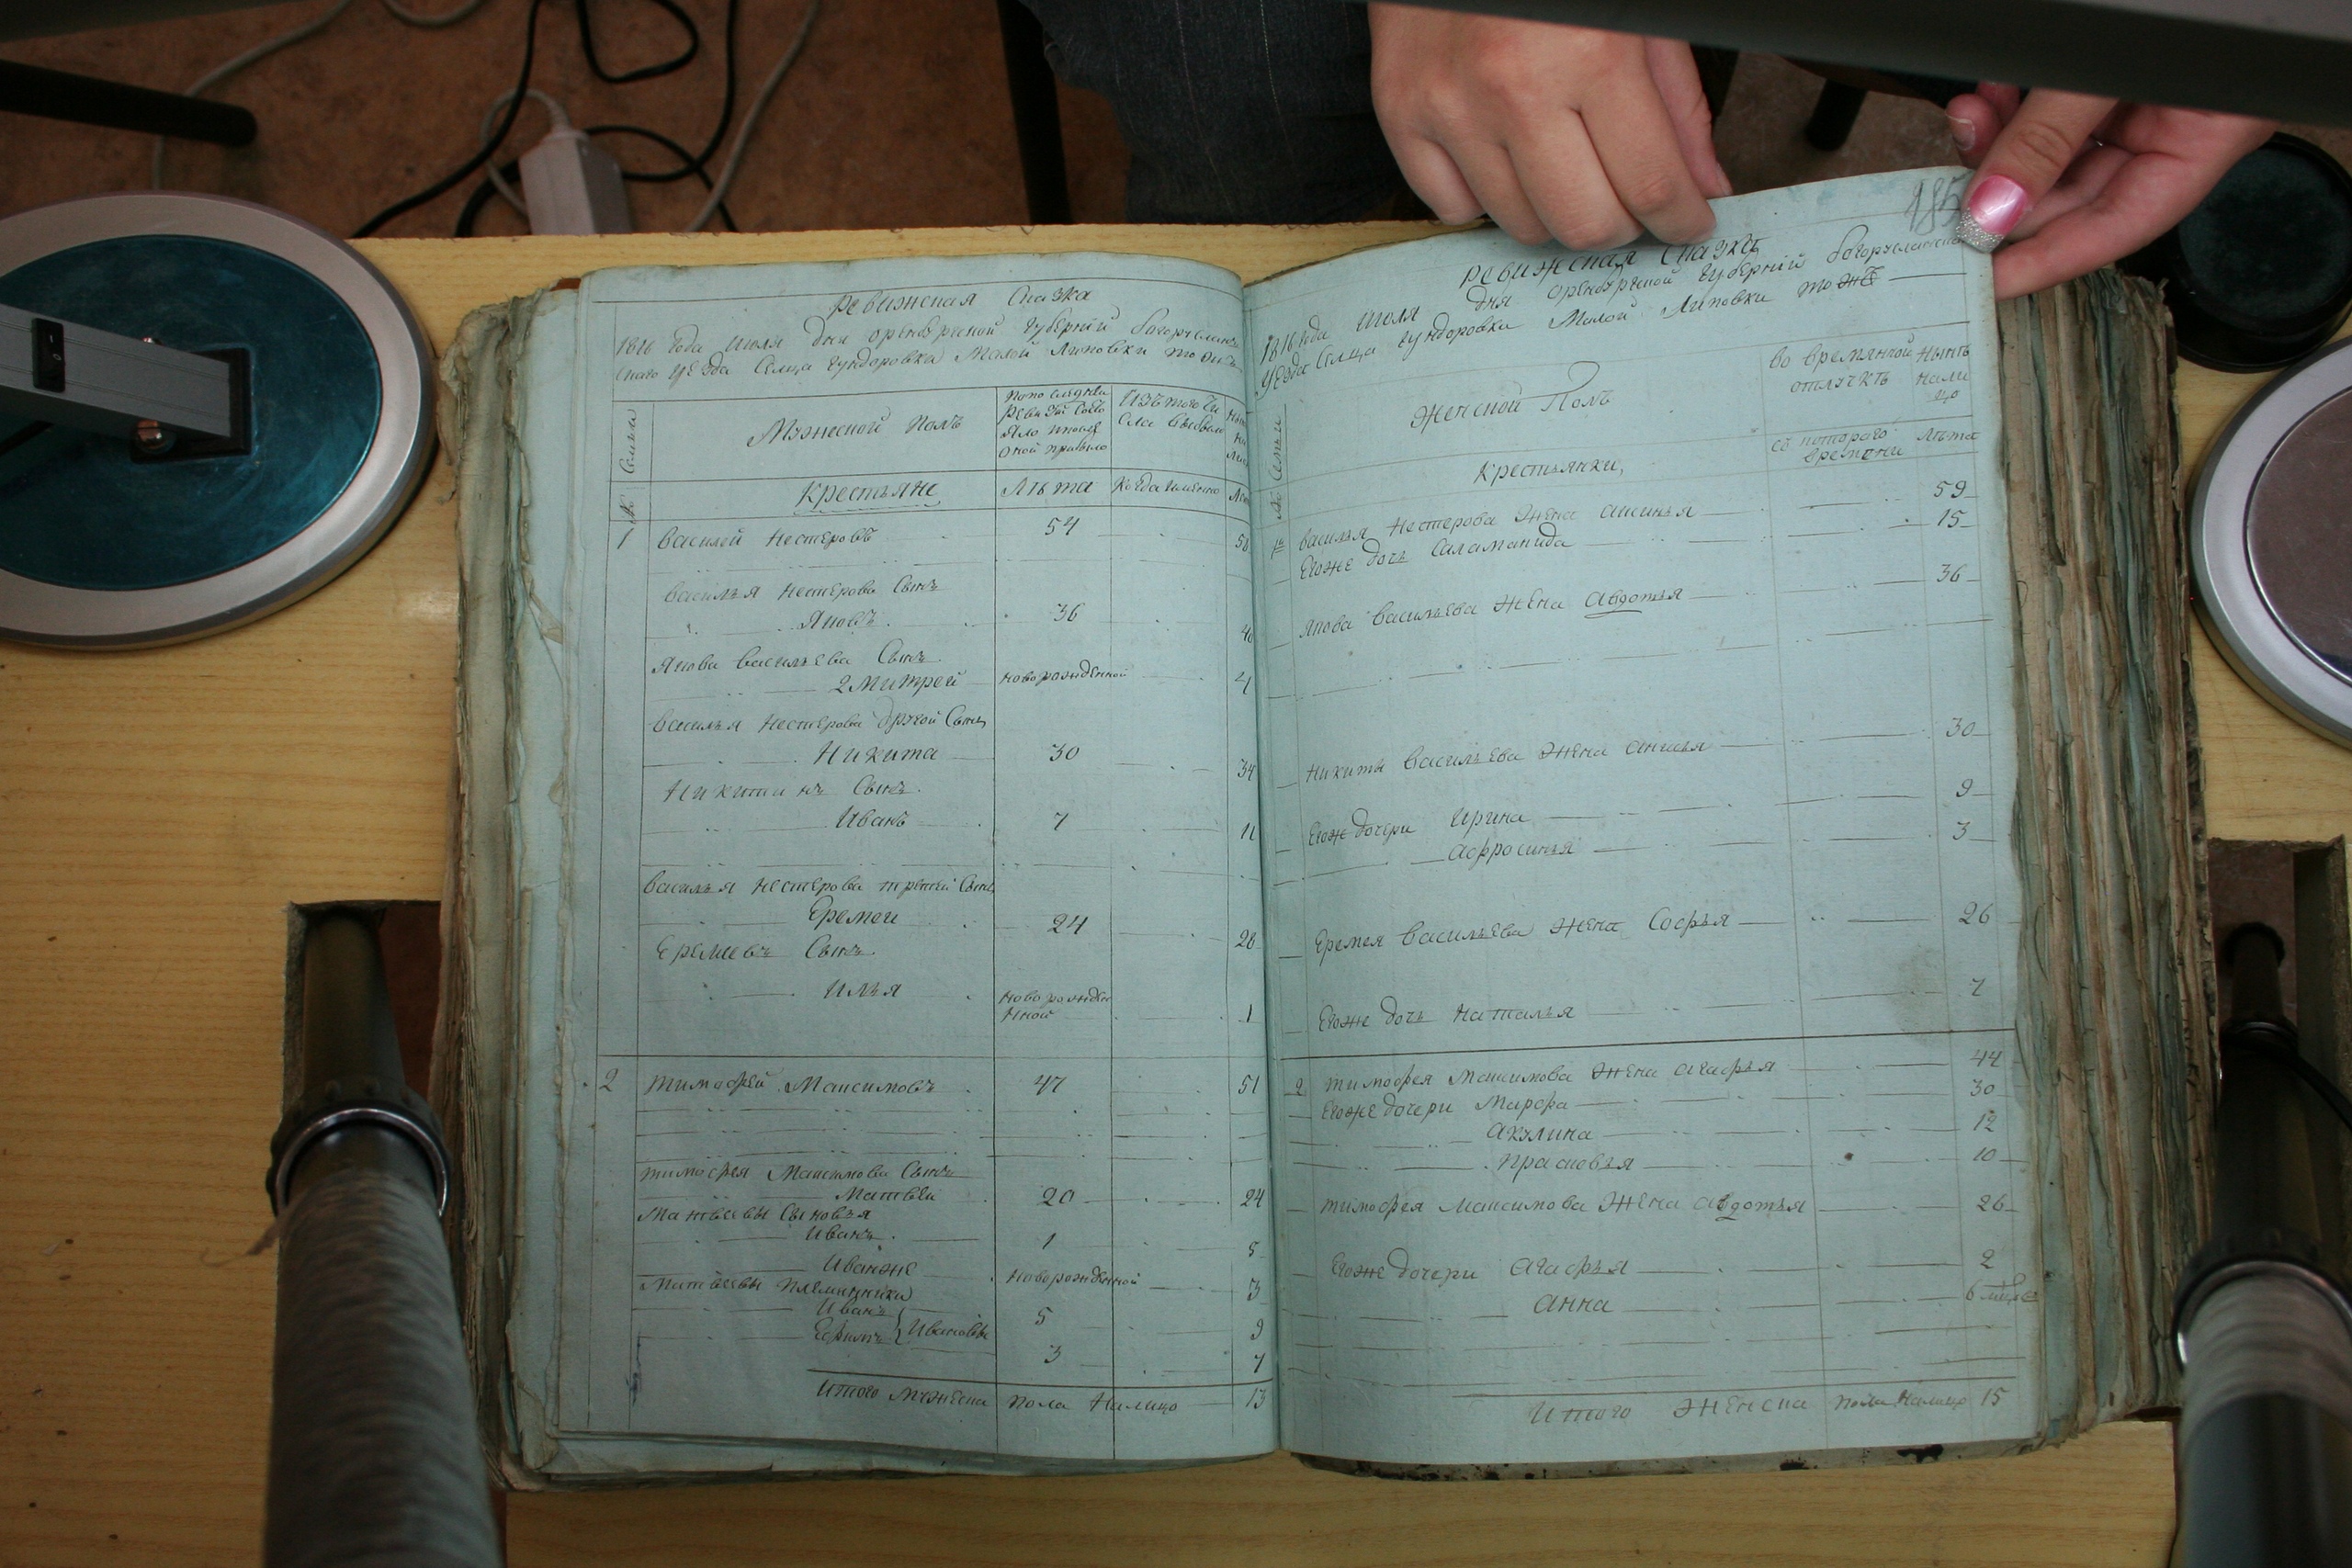 Ревижская Сказка
1816 года Июля дня Оренбурской Губерній Богоруслан
скаго уезда Селца Гундоровка Малой Липовки то жъ
№ Семьи
Мужеской полъ
По последней
Ревизій состо
яло и после
оной прибыло
Изъ того чи
сла выбыло
Крестьяне
Лѣта
Когда именно
1 Василей Нестеровъ 54 58
Василья Нестерова Сынъ
Яковъ 36 40
Якова Васильева Сынъ
Дмитрей новорожденной 4
Василья Нестерова другой Сынъ
Никита 30 34
Никитинъ Сынъ
Иванъ 7 11
Василья Нестерова третей Сынъ
Еремеи 24 28
Еремеевъ Сынъ
Илья новорожде
нной 1
2 Тимофей Максимовъ 47 51
Тимофея Максимова Сынъ
Матвеи 20 24
Матвеевы Сыновья
Иванъ 1 5
Иванже новорожденной 3
Матвеевы племянники
Иванъ 5 9
Ефимъ Ивановы 3 7
Итого мужеска пола Налицо 13
185
Ревижская Сказка
1816 года Июля дня Оренбурской Губерній Богоруслан
Уезда Селца Гундоровка Малой Липовки то жъ
№ Семьи
Женской Полъ
во времянной
отлучкѣ
Нынѣ
нали
цо
Крестьянки,
съ котораго
времени
Лѣта
1 Василья Нестерова Жена Аксинья 59
Егоже дочь Саламанида 15
Якова Васильева Жена Авдотья 36
Никиты Васильева Жена Анисья 30
Егож дочери Ирина 9
Афросинья 3
Еремея Васильева Жена Софья 26
Егоже дочь Наталья 7
2 Тимофея Максимова Жена Агафья 44
Егоже дочери Марфа 30
Акулина 12
Прасковья 10
Тимофея Максимова Жена Авдотья 26
Егоже дочери Агафья 2
Анна 6
Итого Женска пола Налицо 15